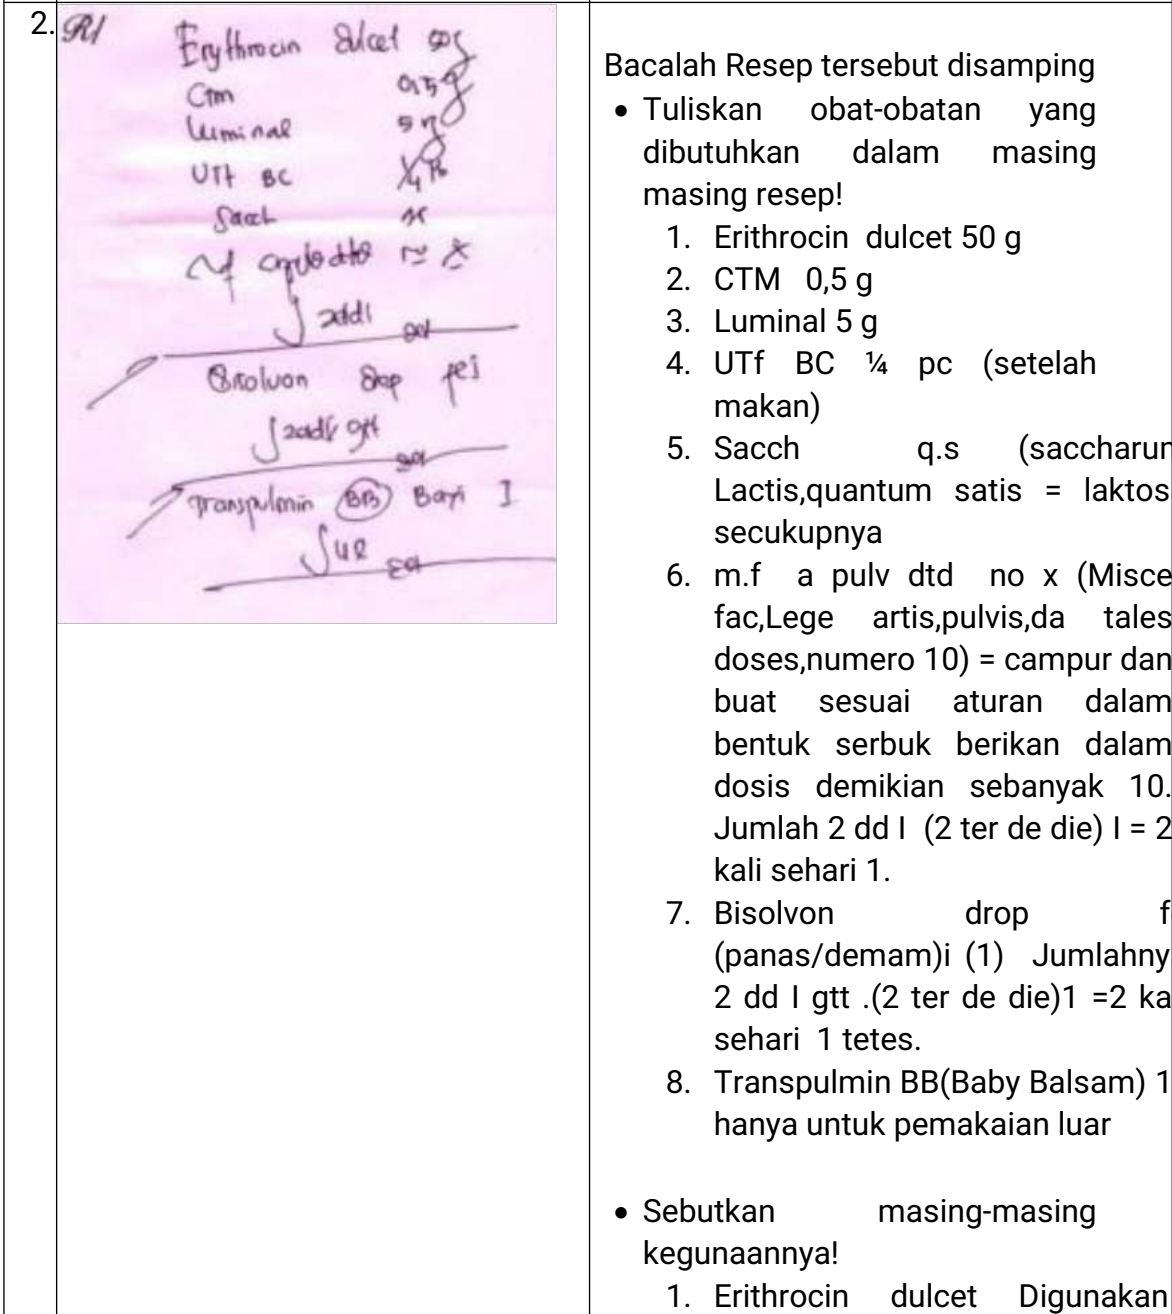 2.
R/
Erythrocin dulcet 50
CTM 0,5
Luminal 5
UTf BC 1/4
Sacch
2dd1
Bisolvon drop fl I
2dd gtt
Transpulmin BB Bayi I
UE
Bacalah Resep tersebut disamping
• Tuliskan obat-obatan yang
dibutuhkan dalam masing
masing resep!
1. Erithrocin dulcet 50 g
2. CTM 0,5 g
3. Luminal 5 g
4. UTf BC ¼ pc (setelah
makan)
5. Sacch q.s (saccharum
Lactis,quantum satis = laktos
secukupnya
6. m.f a pulv dtd no x (Misce
fac,Lege artis,pulvis,da tales
doses,numero 10) = campur dan
buat sesuai aturan dalam
bentuk serbuk berikan dalam
dosis demikian sebanyak 10.
Jumlah 2 dd I (2 ter de die) I = 2
kali sehari 1.
7. Bisolvon drop f
(panas/demam)i (1) Jumlahny
2 dd I gtt .(2 ter de die)1 =2 ka
sehari 1 tetes.
8. Transpulmin BB(Baby Balsam) 1
hanya untuk pemakaian luar
• Sebutkan masing-masing
kegunaannya!
1. Erithrocin dulcet Digunakan